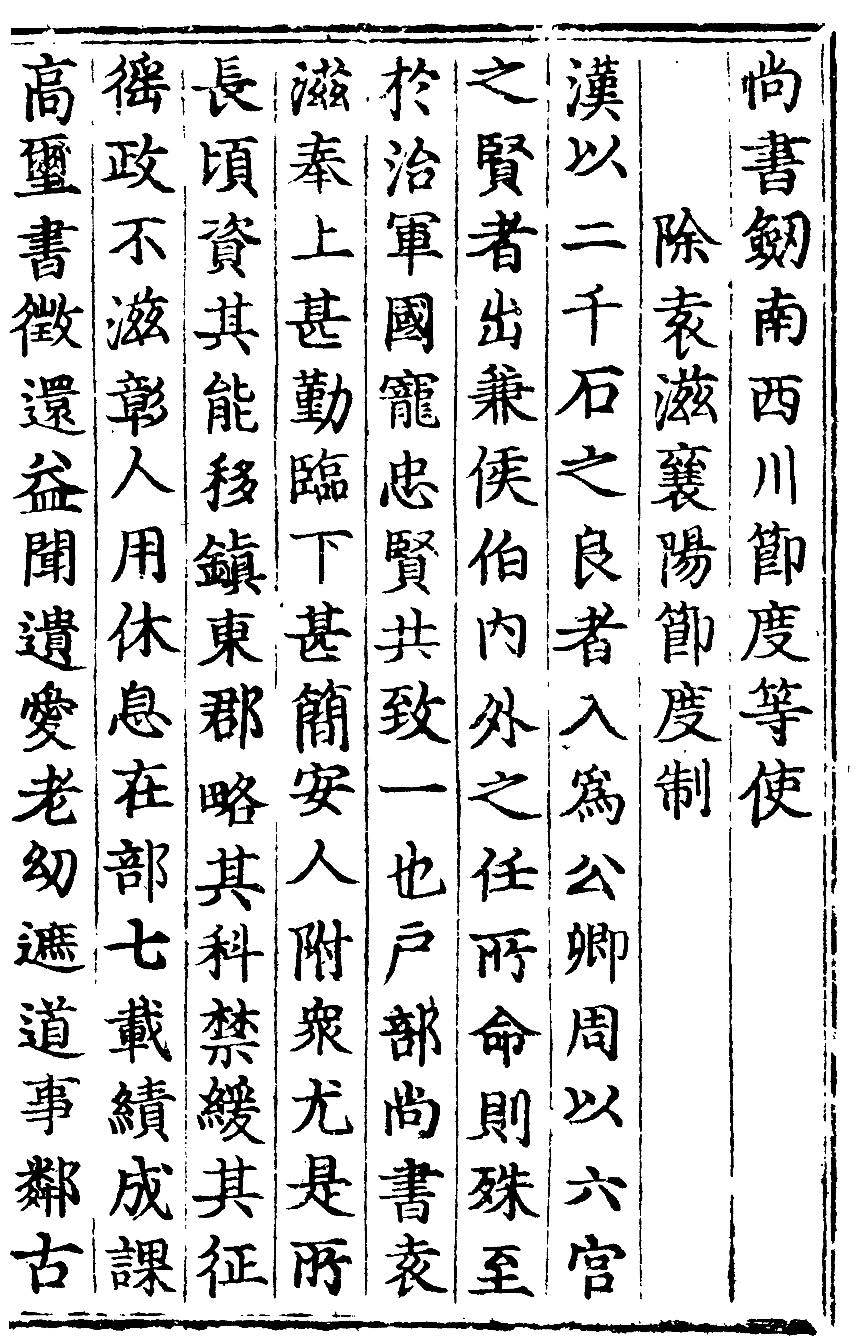 尚書劒南西川節度等使
除袁滋襄陽節度制
漢以二千石之良者入爲公卿周以六官
之賢者出兼侯伯內外之任所命則殊至
於治軍國寵忠賢共致一也戶部尚書袁
滋奉上甚勤臨下甚簡安人附衆尤是所
長頃資其能移鎮東郡略其科禁緩其征
徭政不滋彰人用休息在部七載績成課
高璽書徵還益聞遺愛老幼遮道事鄰古